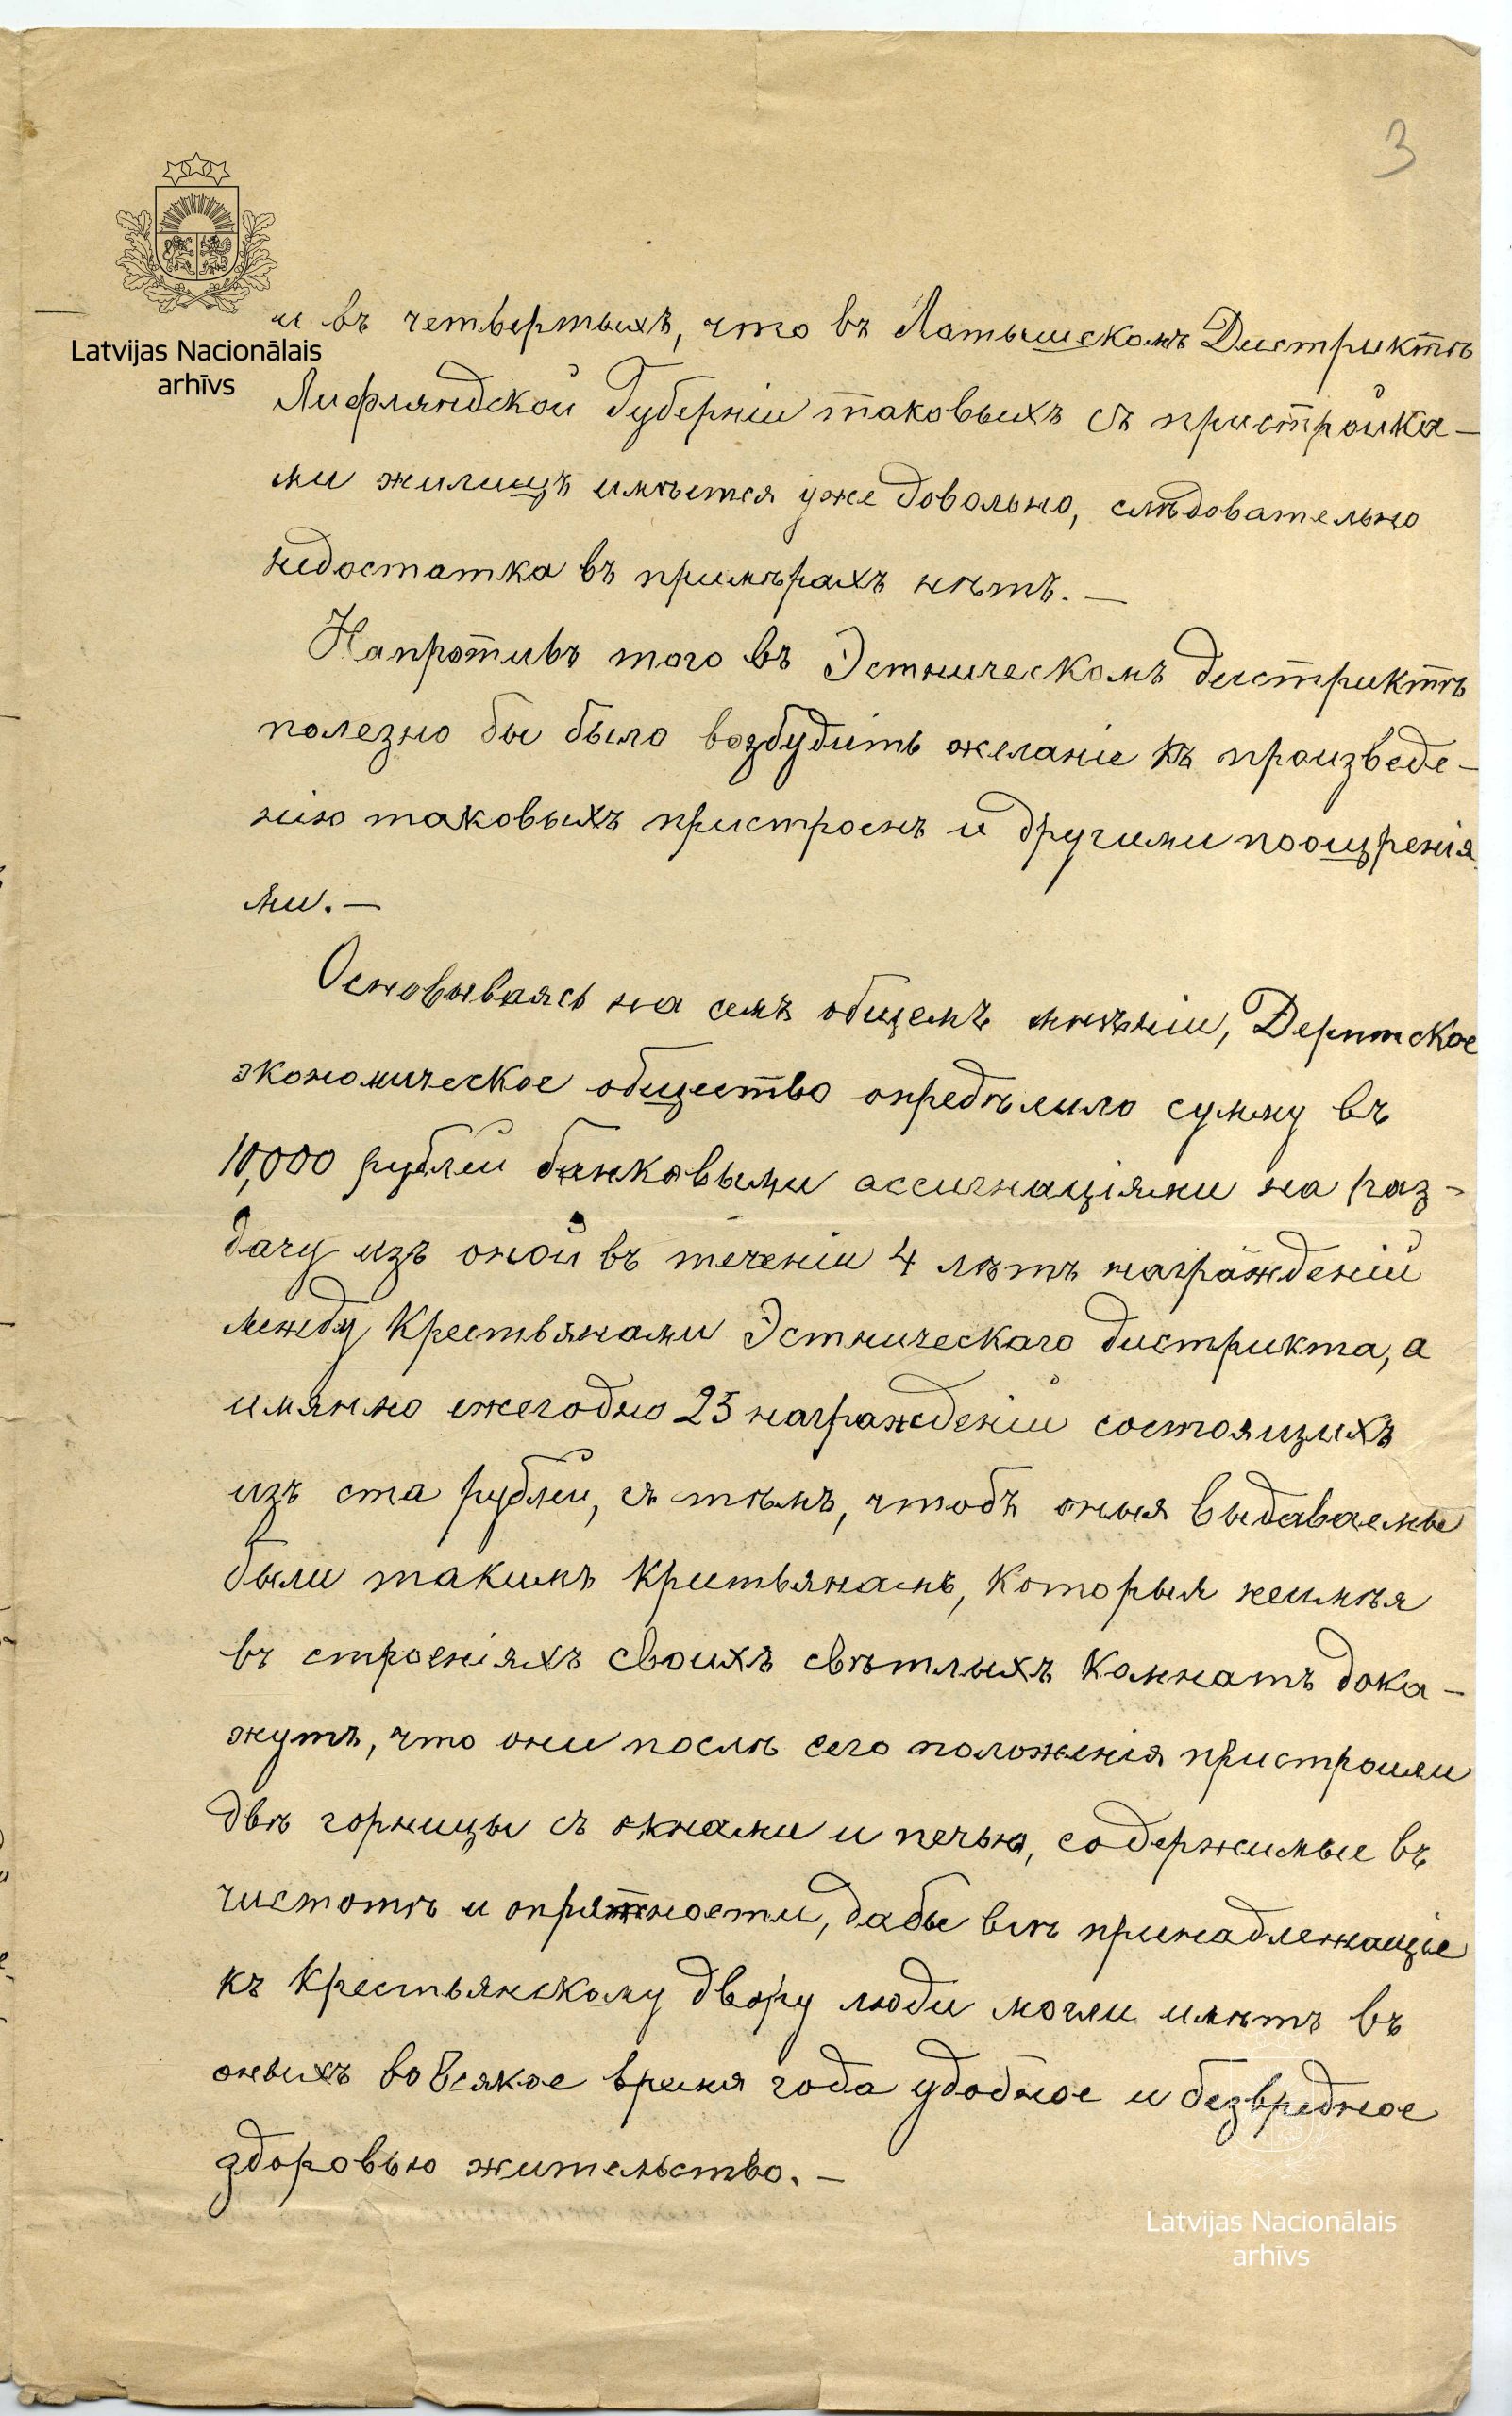 3
Latvijas Nacionālais
arhīvs
и въ четвертыхъ, что въ Латышскомъ Дистриктѣ
Лифляндской Губерніи таковыхъ съ пристройка-
ми жилищъ имѣется уже довольно, слѣдовательно
недостатка въ примѣрахъ нѣтъ. —
Напротивъ того въ Эстническомъ дистриктѣ
полезно бы было возбудить желаніе къ произведе-
нію таковыхъ пристроекъ и другими поощренія
ми. —
Основываясь на семъ общемъ мнѣніи, Дерптское
экономическое общество опредѣлило сумму въ
10,000 рублей банковыми ассигнаціями на раз-
дачу изъ оной въ теченіи 4 лѣтъ награжденій
между Крестьянами Эстническаго дистрикта, а
имянно ежегодно 25 награжденій состоящихъ
изъ ста рублей, съ тѣмъ, чтобъ оныя выдаваемы
были такимъ Крестьянамъ, Которыя неимѣя
въ строеніяхъ своихъ свѣтлыхъ Комнатъ дока-
жутъ, что они послѣ сего положенія пристроили
двѣ горницы съ окнами и печью, содержимые въ
чистотѣ и опрятности, дабы всѣ принадлежащіе
къ Крестьянскому двору люди могли имѣть въ
оныхъ во всякое время года удобное и безвредное
здоровью жительство. —
Latvijas Nacionālais
arhīvs